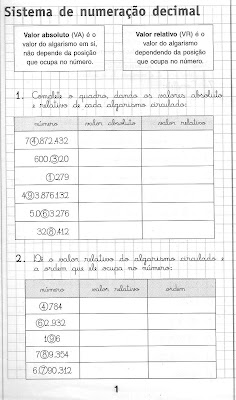 Sistema de numeração decimal
Valor absoluto (VA) é o
valor do algarismo em si,
não depende da posição
que ocupa no número.
Valor relativo (VR) é o
valor do algarismo
dependendo da posição
que ocupa no número.
1. Complete o quadro, dando os valores absoluto
e relativo de cada algarismo circulado:
número valor absoluto valor relativo
7④.872.432
600.③20
①279
4⑨3.876.132
5.0⑥3.276
32⑧.412
2. Dê o valor relativo do algarismo circulado e
a ordem que ele ocupa no número:
número valor relativo ordem
④.784
⑥2.932
1⑨6
7⑧9.354
6.⑦90.312
1